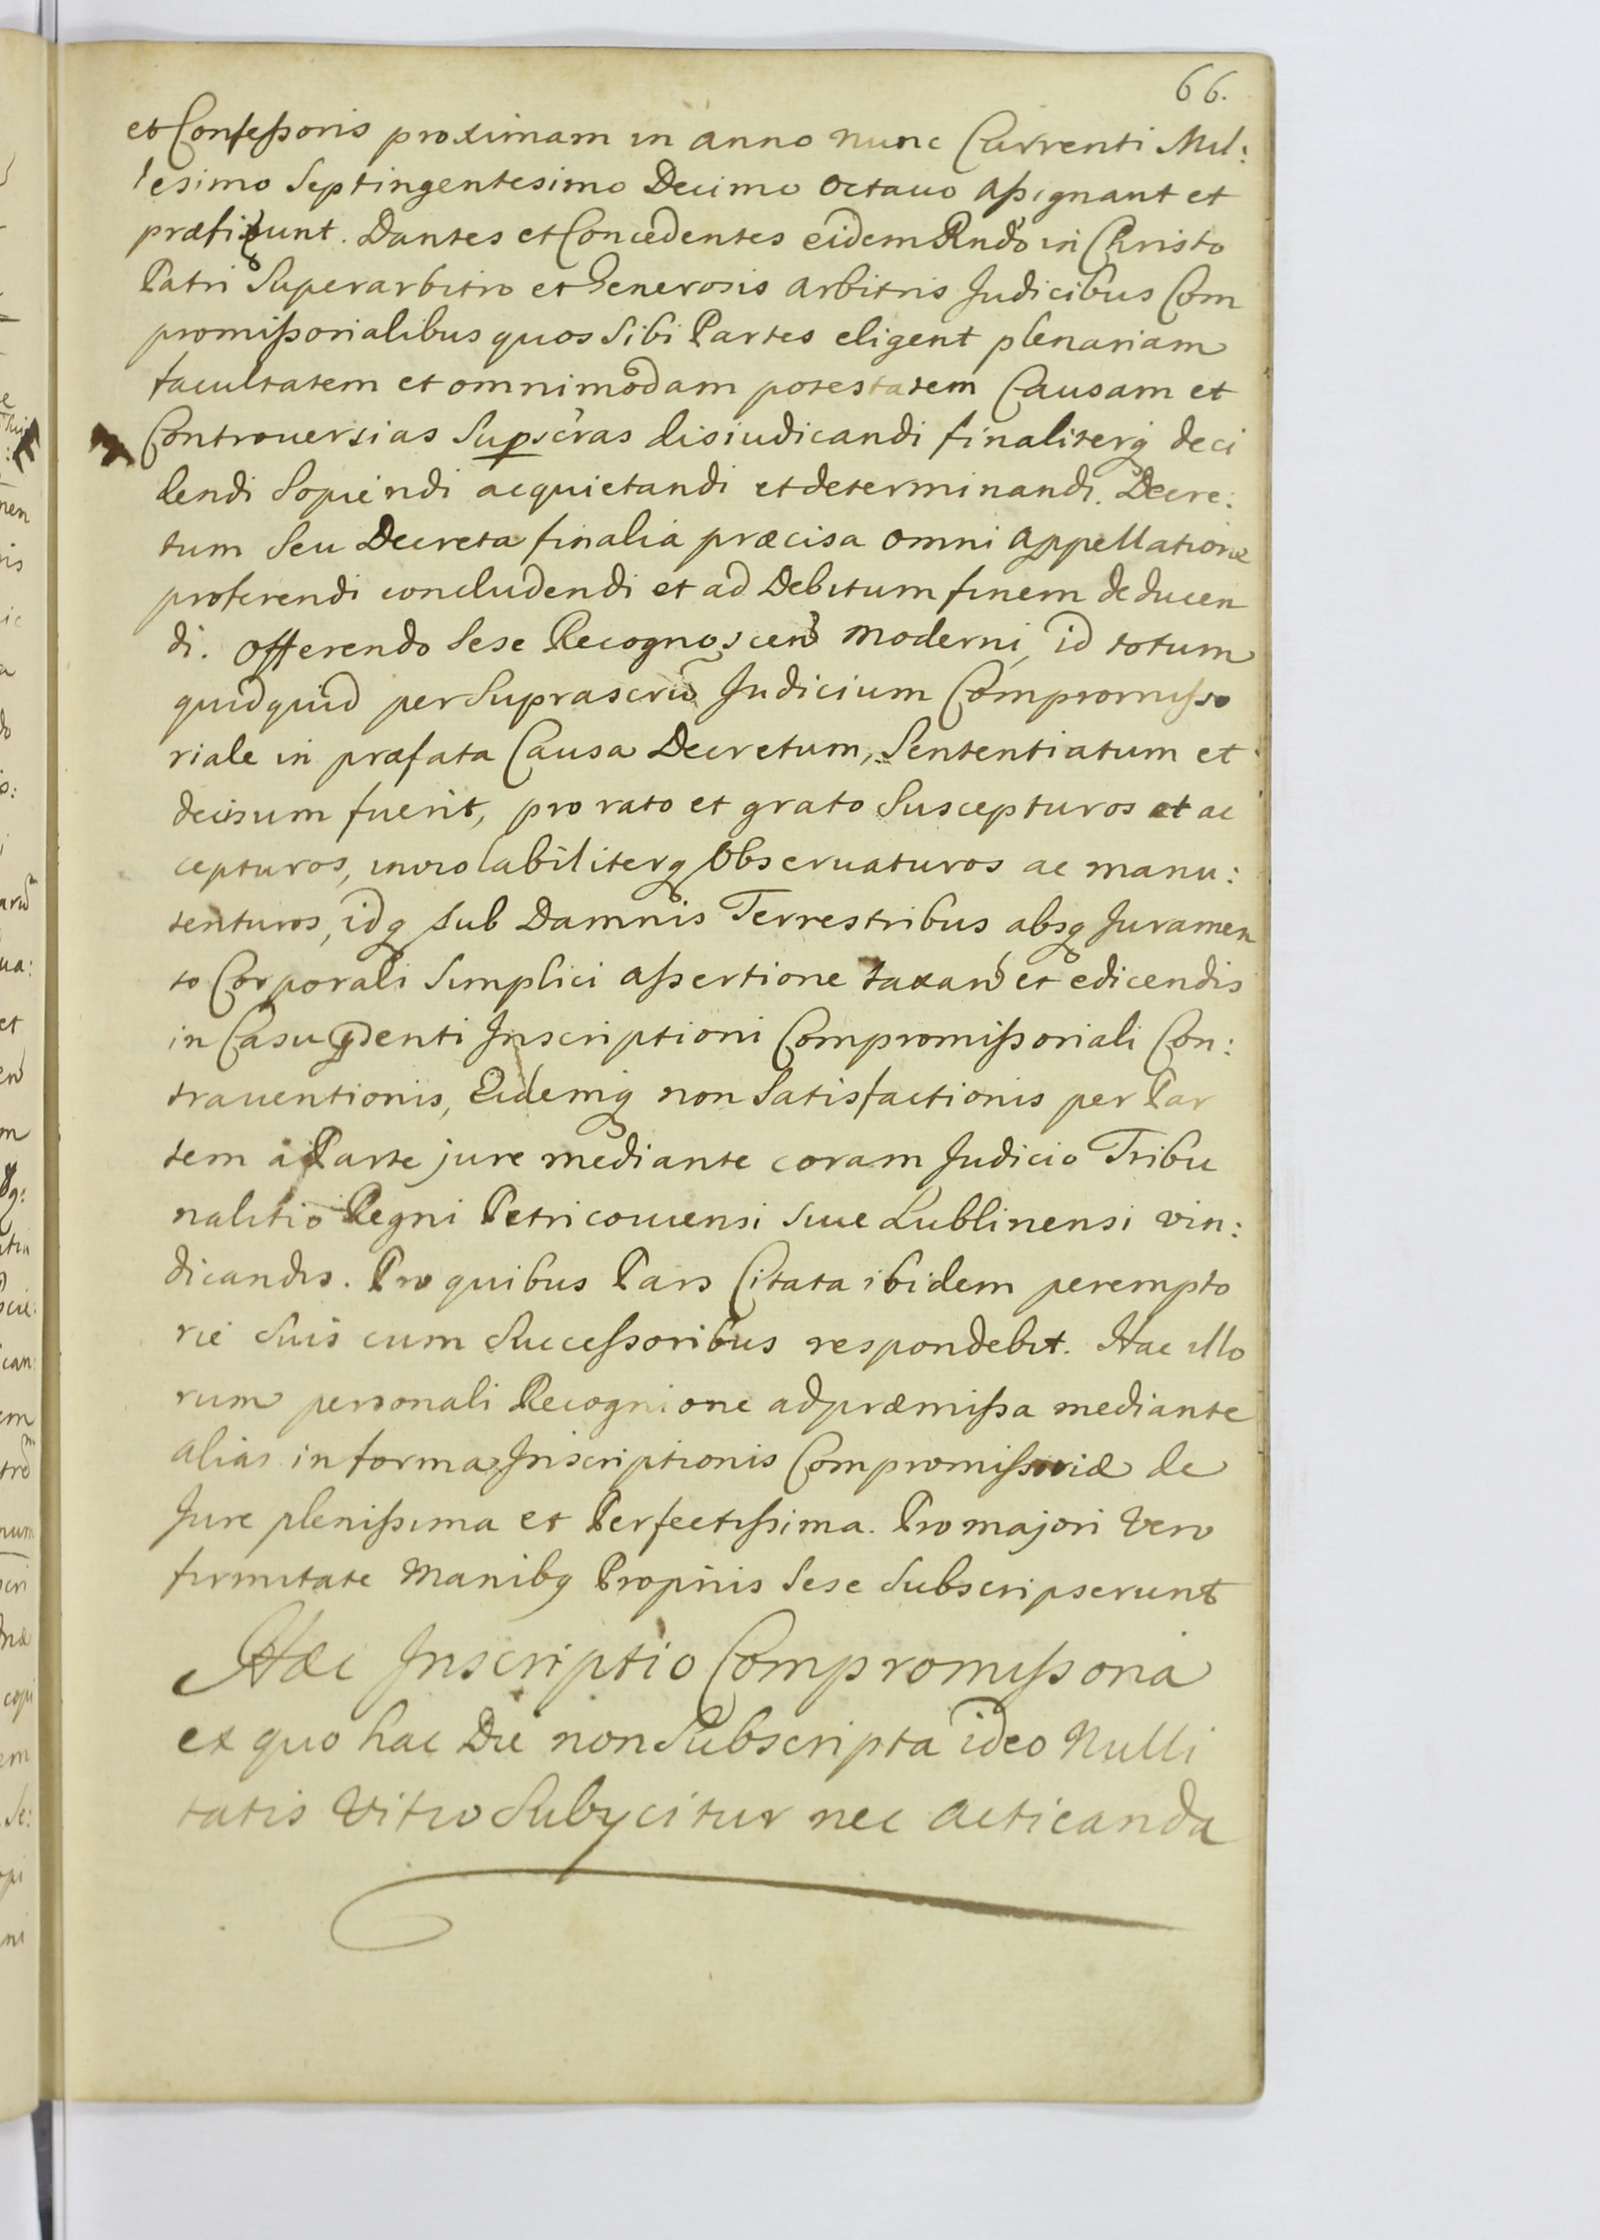 66.
et Confeßoris proximam in anno nunc Currenti Mil:
lesimo Septingentesimo Decimo octauo aßignant et
præfigunt. Dantes et Concedentes eidem Rndo in Christo
Patri Superarbitro et Generosis arbitris Judicibus Com
promißorialibus quos Sibi Partes eligent plenariam
facultatem et omnimodam potestatem Causam et
Controuersias Supscras disiudicandi finaliterq deci
dendi Sopiendi acquietandi et determinandi. Decre:
tum Seu Decreta finalia præcisa omni appellatione
proferendi concludendi et ad Debitum finem deducen
di. offerendo Sese Recognoscen moderni, id totum
quidquid per Suprascru Judicium Compromißo
riale in præfata Causa Decretum, Sententiatum et
decisum fuerit, pro rato et grato Suscepturos et ac
cepturos, inviolabiliterq Obseruaturos ac manu:
tenturos, idq sub Damnis Terrestribus absq Juramen
to Corporali Simplici aßertione taxan et edicendis
in Casu pdenti Inscriptioni Compromißoriali Con:
trauentionis, Eidemq non Satisfactionis per Par
tem à Parte jure mediante coram Judicio Tribu
nalitio Regni Petricouiensi Siue Lublinensi vin:
dicandis. Pro quibus Pars Citata ibidem perempto
rie Suis cum Succeßoribus respondebit. Hac illo
rum personali Recognione ad præmißa mediante
alias in forma Inscriptionis Compromißoriæ de
Jure plenißima et Perfectißima. Pro majori Vero
firmitate Manibq Propriis Sese Subscripserunt
Hæc Inscriptio Compromißoria
ex quo hac Die non Subscripta ideo Nulli
tatis Vitio Subycitur nec acticanda